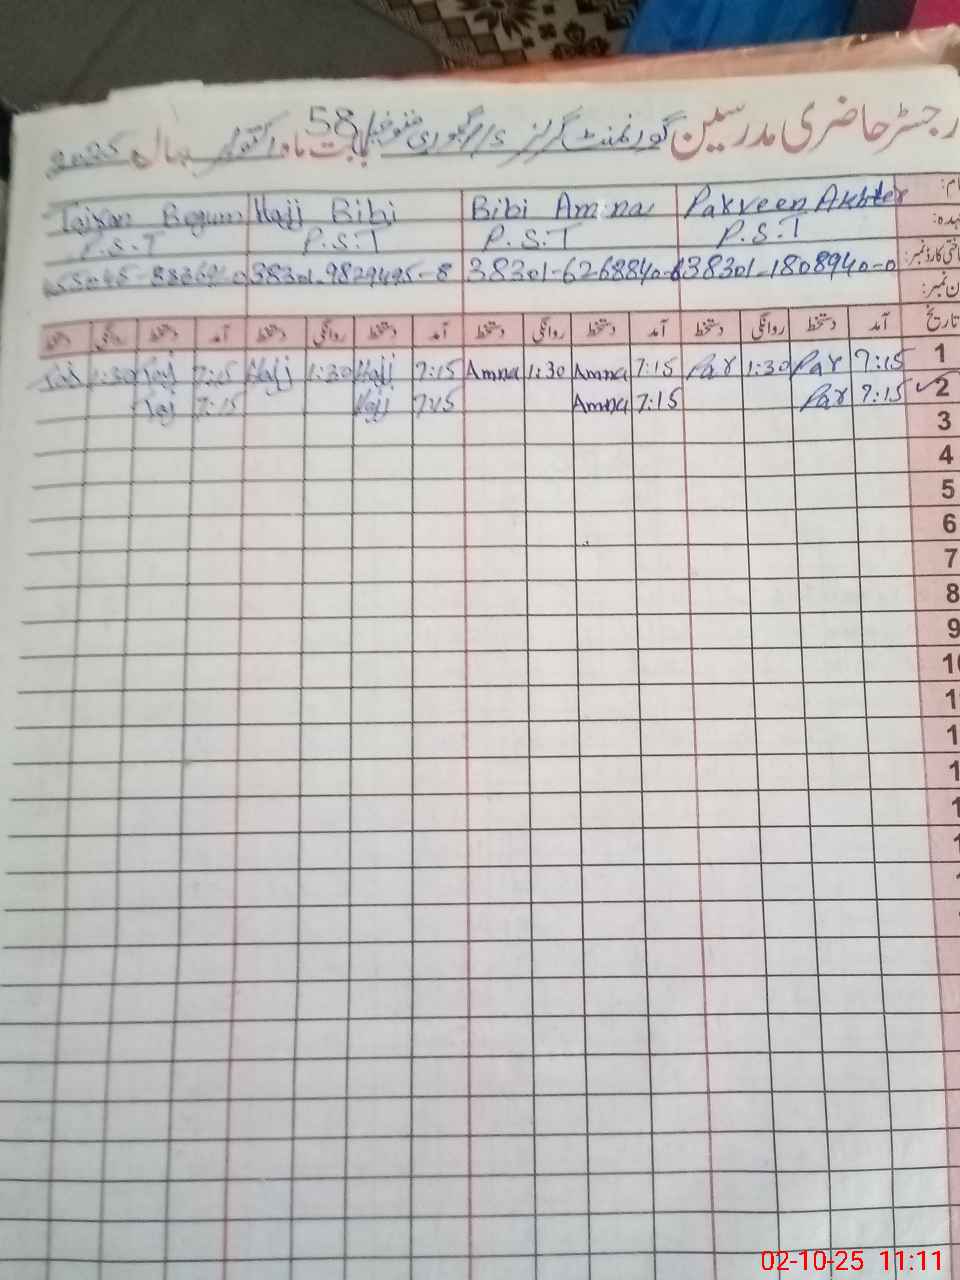 رجسٹر حاضری مدرسین گورنمنٹ گرلز بابت ماہ اکتوبر سال 2025
58
Parveen Akhter Bibi Amna Hajj Bibi Begum
عہدہ: P.S.T P.S.T P.S.T P.S.T
شناختی کارڈ نمبر: 38301-1808940-0 38301-6268840- 38301-9829495-8
تاریخ آمد دستخط روانگی دستخط آمد دستخط روانگی دستخط آمد دستخط روانگی دستخط آمد دستخط روانگی دستخط
1 7:15 Par 1:30 Par 7:15 Amna 1:30 Amna 7:15 Hajj 1:30 Hajj 7:15 Taj 1:30 Taj
2 7:15 Par 7:15 Amna 7:15 Hajj 7:15 Taj
3
4
5
6
7
8
9
02-10-25 11:11